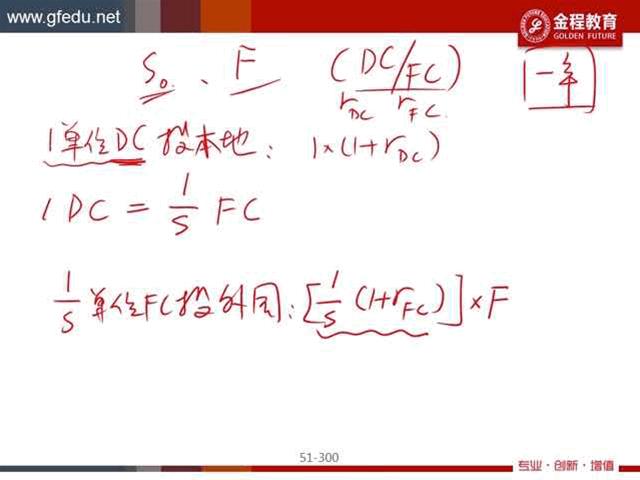 www.gfedu.net
金程教育
GOLDEN FUTURE
S₀ 、 F (DC/FC) 一年
r_DC r_FC
1单位DC投本地: 1×(1+r_DC)
1 DC = 1/S FC
1/S 单位FC投外国: [1/S (1+r_FC)]×F
51-300
专业·创新·增值